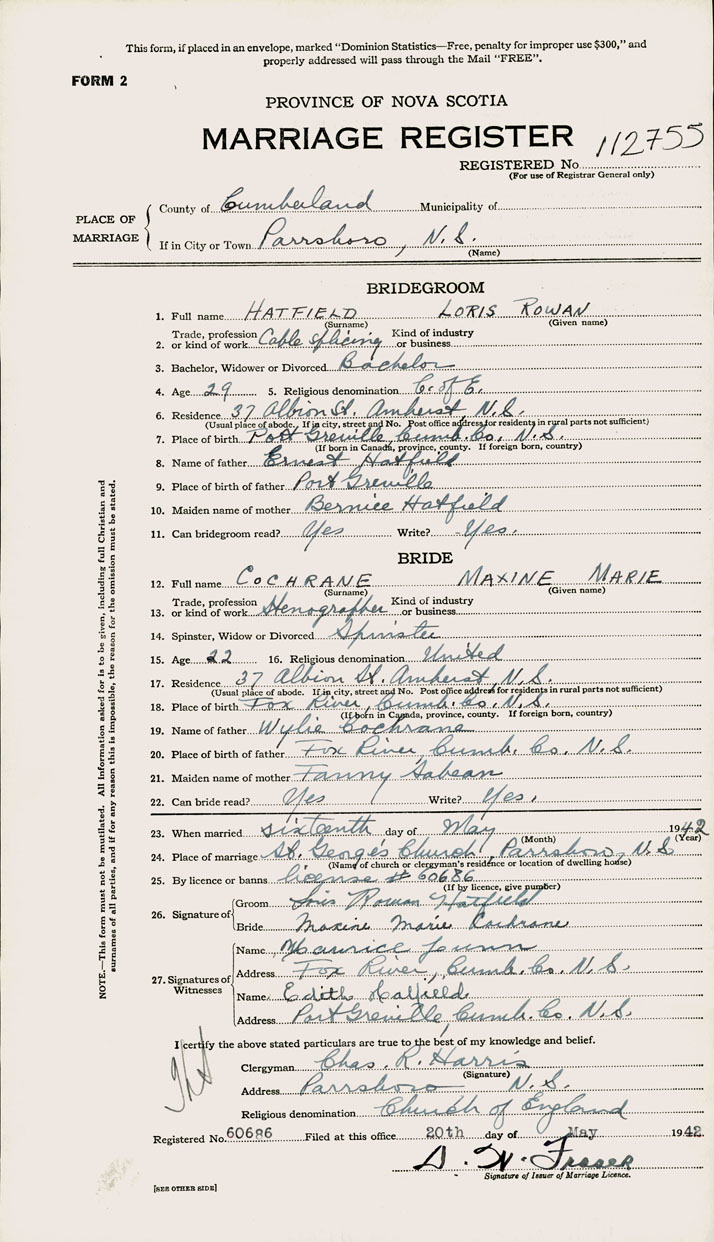 This form, if placed in an envelope, marked "Dominion Statistics—Free, penalty for improper use $300," and
properly addressed will pass through the Mail "FREE".
FORM 2
PROVINCE OF NOVA SCOTIA
MARRIAGE REGISTER 112755
REGISTERED No.
(For use of Registrar General only)
PLACE OF MARRIAGE
County of Cumberland Municipality of
If in City or Town Parrsboro, N.S.
(Name)
BRIDEGROOM
1. Full name HATFIELD LORIS ROWAN
(Surname) (Given name)
2. Trade, profession or kind of work Cable splicing Kind of industry or business
3. Bachelor, Widower or Divorced Bachelor
4. Age 29 5. Religious denomination C. of E.
6. Residence 37 Albion St. Amherst, N.S.
(Usual place of abode. If in city, street and No. Post office address for residents in rural parts not sufficient)
7. Place of birth Port Greville, Cumb. Co, N.S.
(If born in Canada, province, county. If foreign born, country)
8. Name of father Ernest Hatfield
9. Place of birth of father Port Greville
10. Maiden name of mother Bernice Hatfield
11. Can bridegroom read? Yes Write? Yes.
BRIDE
12. Full name COCHRANE MAXINE MARIE
(Surname) (Given name)
13. Trade, profession or kind of work Stenographer Kind of industry or business
14. Spinster, Widow or Divorced Spinster
15. Age 22 16. Religious denomination United
17. Residence 37 Albion St. Amherst, N.S.
(Usual place of abode. If in city, street and No. Post office address for residents in rural parts not sufficient)
18. Place of birth Fox River, Cumb. Co. N.S.
(If born in Canada, province, county. If foreign born, country)
19. Name of father Wylie Cochrane
20. Place of birth of father Fox River, Cumb. Co. N.S.
21. Maiden name of mother Fanny Sabean
22. Can bride read? Yes Write? Yes.
23. When married sixteenth day of May 1942
(Month) (Year)
24. Place of marriage St. George's Church, Parrsboro, N.S
(Name of church or clergyman's residence or location of dwelling house)
25. By licence or banns license # 60686
(If by licence, give number)
26. Signature of
Groom Loris Rowan Hatfield
Bride Maxine Marie Cochrane
27. Signatures of Witnesses
Name Maurice
Address Fox River, Cumb. Co. N.S.
Name Edith Hatfield
Address Port Greville, Cumb. Co. N.S.
I certify the above stated particulars are true to the best of my knowledge and belief.
Clergyman Chas. R. Harris
(Signature)
Address Parrsboro N.S.
Religious denomination Church of England
Registered No. 60686 Filed at this office 20th day of May 1942
D. W. Fraser
Signature of Issuer of Marriage Licence.
[SEE OTHER SIDE]
NOTE.—This form must not be mutilated. All information asked for is to be given, including full Christian and
surnames of all parties, and if for any reason this is impossible, the reason for the omission must be stated.